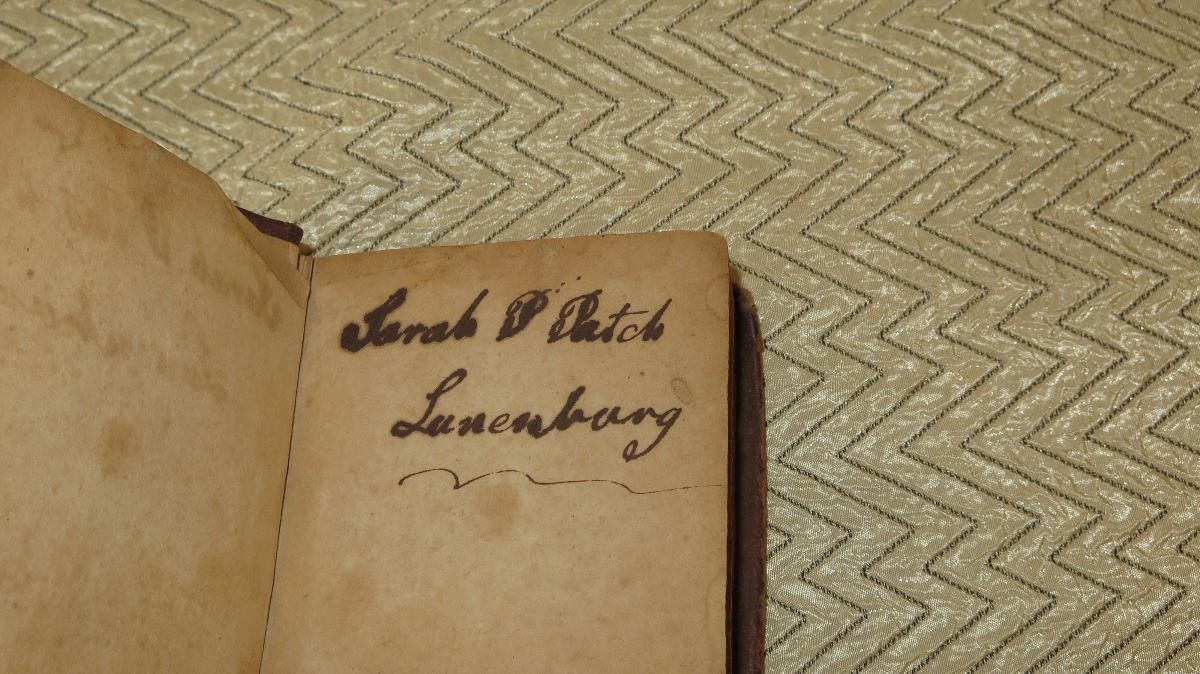 Sarah P Patch
Lunenburg